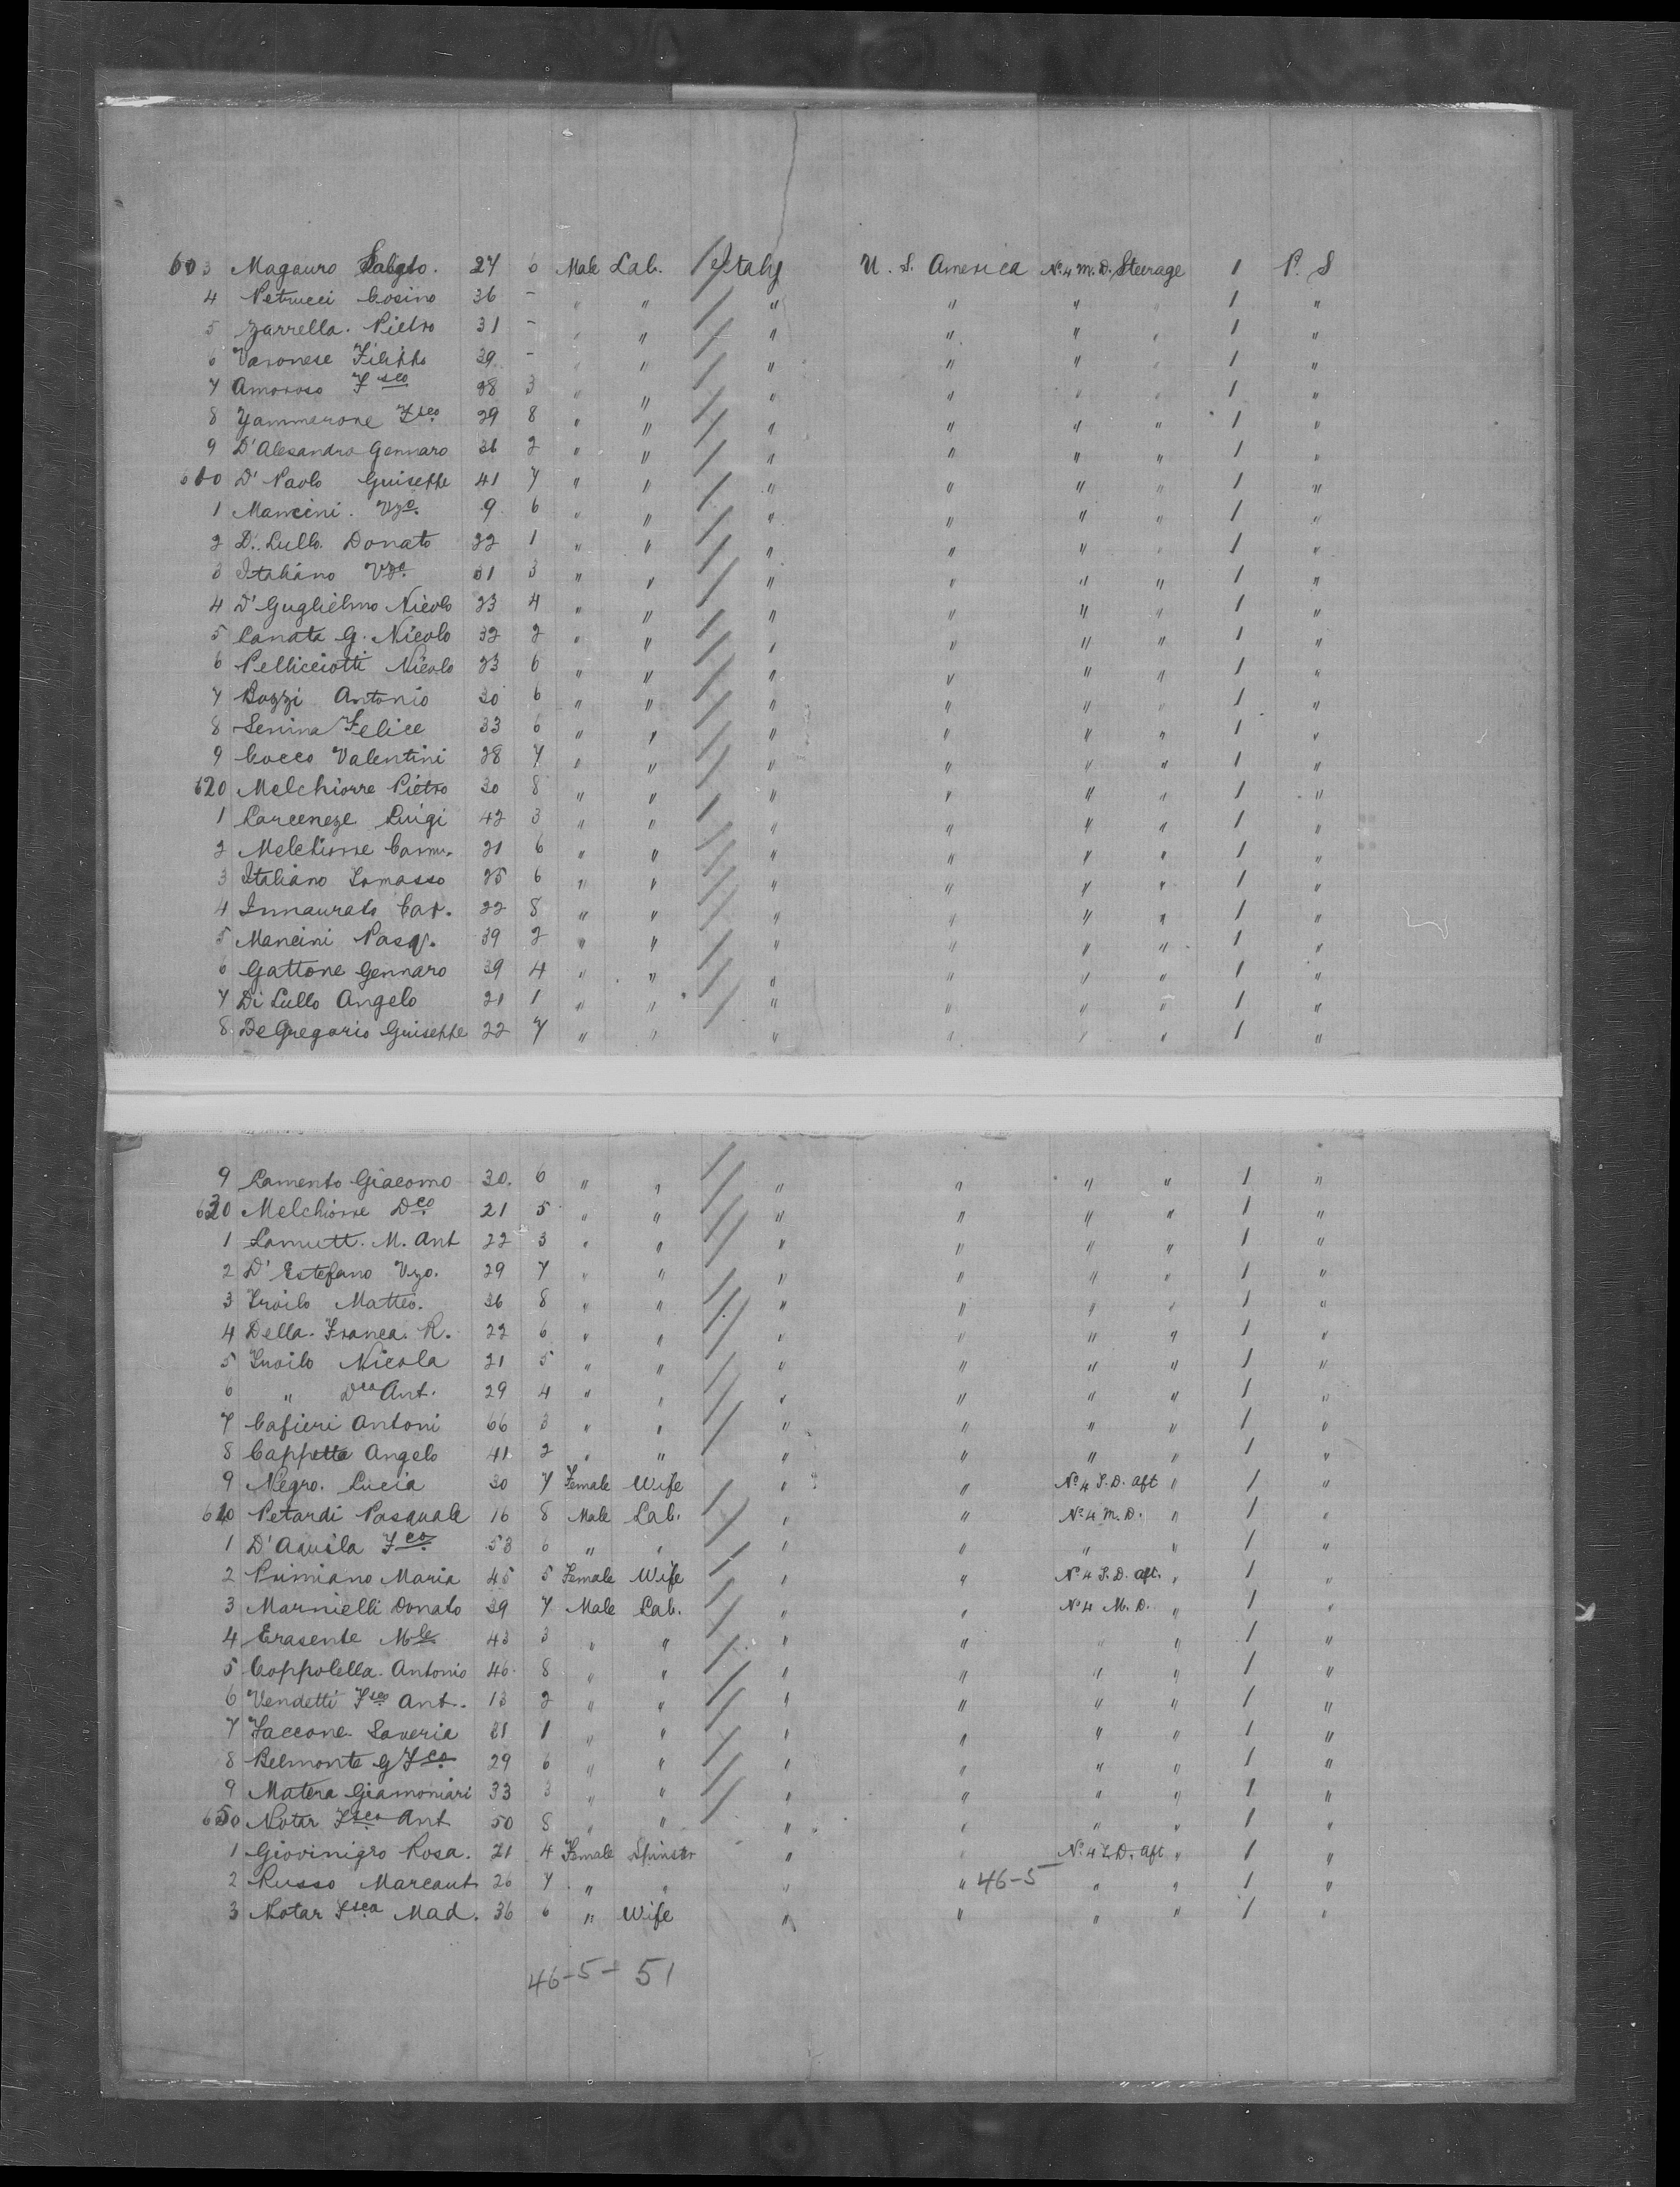 603 Magauro Sabato. 27 6 Male Lab. Italy U. S. America No 4 M. D. Steerage 1 P. S
4 Petrucci Cosino 36 - " " " " " " 1 "
5 Zarrella. Pietro 31 - " " " " " " 1 "
6 Varonese Filippo 39 - " " " " " " 1 "
7 Amoroso Fsco 28 3 " " " " " " 1 "
8 Yammarone Fsco 29 8 " " " " " " 1 "
9 D'Alesandro Gennaro 36 2 " " " " " " 1 "
610 D' Paolo Guiseppe 41 7 " " " " " " 1 "
1 Mancini. Vzo. 9 6 " " " " " " 1 "
2 D. Lullo. Donato 22 1 " " " " " " 1 "
3 Italiano Vzo 31 3 " " " " " " 1 "
4 D' Guglielmo Nicolo 23 4 " " " " " " 1 "
5 Canata G. Nicolo 32 2 " " " " " " 1 "
6 Pellicciotti Nicolo 23 6 " " " " " " 1 "
7 Bozzi Antonio 30 6 " " " " " " 1 "
8 Senina Felice 33 6 " " " " " " 1 "
9 Cocco Valentini 28 7 " " " " " " 1 "
620 Melchiorre Pietro 30 8 " " " " " " 1 "
1 Carceneze Luigi 42 3 " " " " " " 1 "
2 Melchiorre Carm. 21 6 " " " " " " 1 "
3 Italiano Tomasso 25 6 " " " " " " 1 "
4 Innaurato Car. 22 8 " " " " " " 1 "
5 Mancini Pasq. 39 2 " " " " " " 1 "
6 Gattone Gennaro 39 4 " " " " " " 1 "
7 Di Lullo Angelo 21 1 " " " " " " 1 "
8 De Gregorio Guiseppe 22 7 " " " " " " 1 "
9 Lamento Giacomo 30. 6 " " " " " " 1 "
630 Melchiorre Dco 21 5 " " " " " " 1 "
1 Lamutt. M. Ant 22 3 " " " " " " 1 "
2 D' Estefano Vzo. 29 7 " " " " " " 1 "
3 Troilo Matteo. 36 8 " " " " " " 1 "
4 Della. Franca. R. 22 6 " " " " " " 1 "
5 Troilo Nicola 21 5 " " " " " " 1 "
6 " Dco Ant. 29 4 " " " " " " 1 "
7 Cafieri Antoni 66 3 " " " " " " 1 "
8 Cappetta Angelo 41 2 " " " " " " 1 "
9 Negro. Lucia 30 7 Female Wife " " No 4 S. D. aft " 1 "
640 Petardi Pasquale 16 8 Male Lab. " " No 4 M. D. " 1 "
1 D'Aquila Fco 53 6 " " " " " " 1 "
2 Primiano Maria 45 5 Female Wife " " No 4 S. D. aft. " 1 "
3 Marnielli Donato 39 7 Male Lab. " " No 4 M. D. " 1 "
4 Erasente Mle 43 3 " " " " " " 1 "
5 Coppolella. Antonio 46. 8 " " " " " " 1 "
6 Vendetti Fsco Ant. 13 2 " " " " " " 1 "
7 Faccone. Saveria 21 1 " " " " " " 1 "
8 Belmonte G Fco 29 6 " " " " " " 1 "
9 Matera Giamoniari 33 3 " " " " " " 1 "
650 Notar Fsco Ant 50 8 " " " " " " 1 "
1 Giovinigro Rosa. 21 4 Female Spinstr " " No 4 S. D. aft " 1 "
2 Russo Marcant 26 7 " " " " 46-5 " " 1 "
3 Notar Fsca Mad. 36 6 " Wife " " " " 1 "
46-5-51